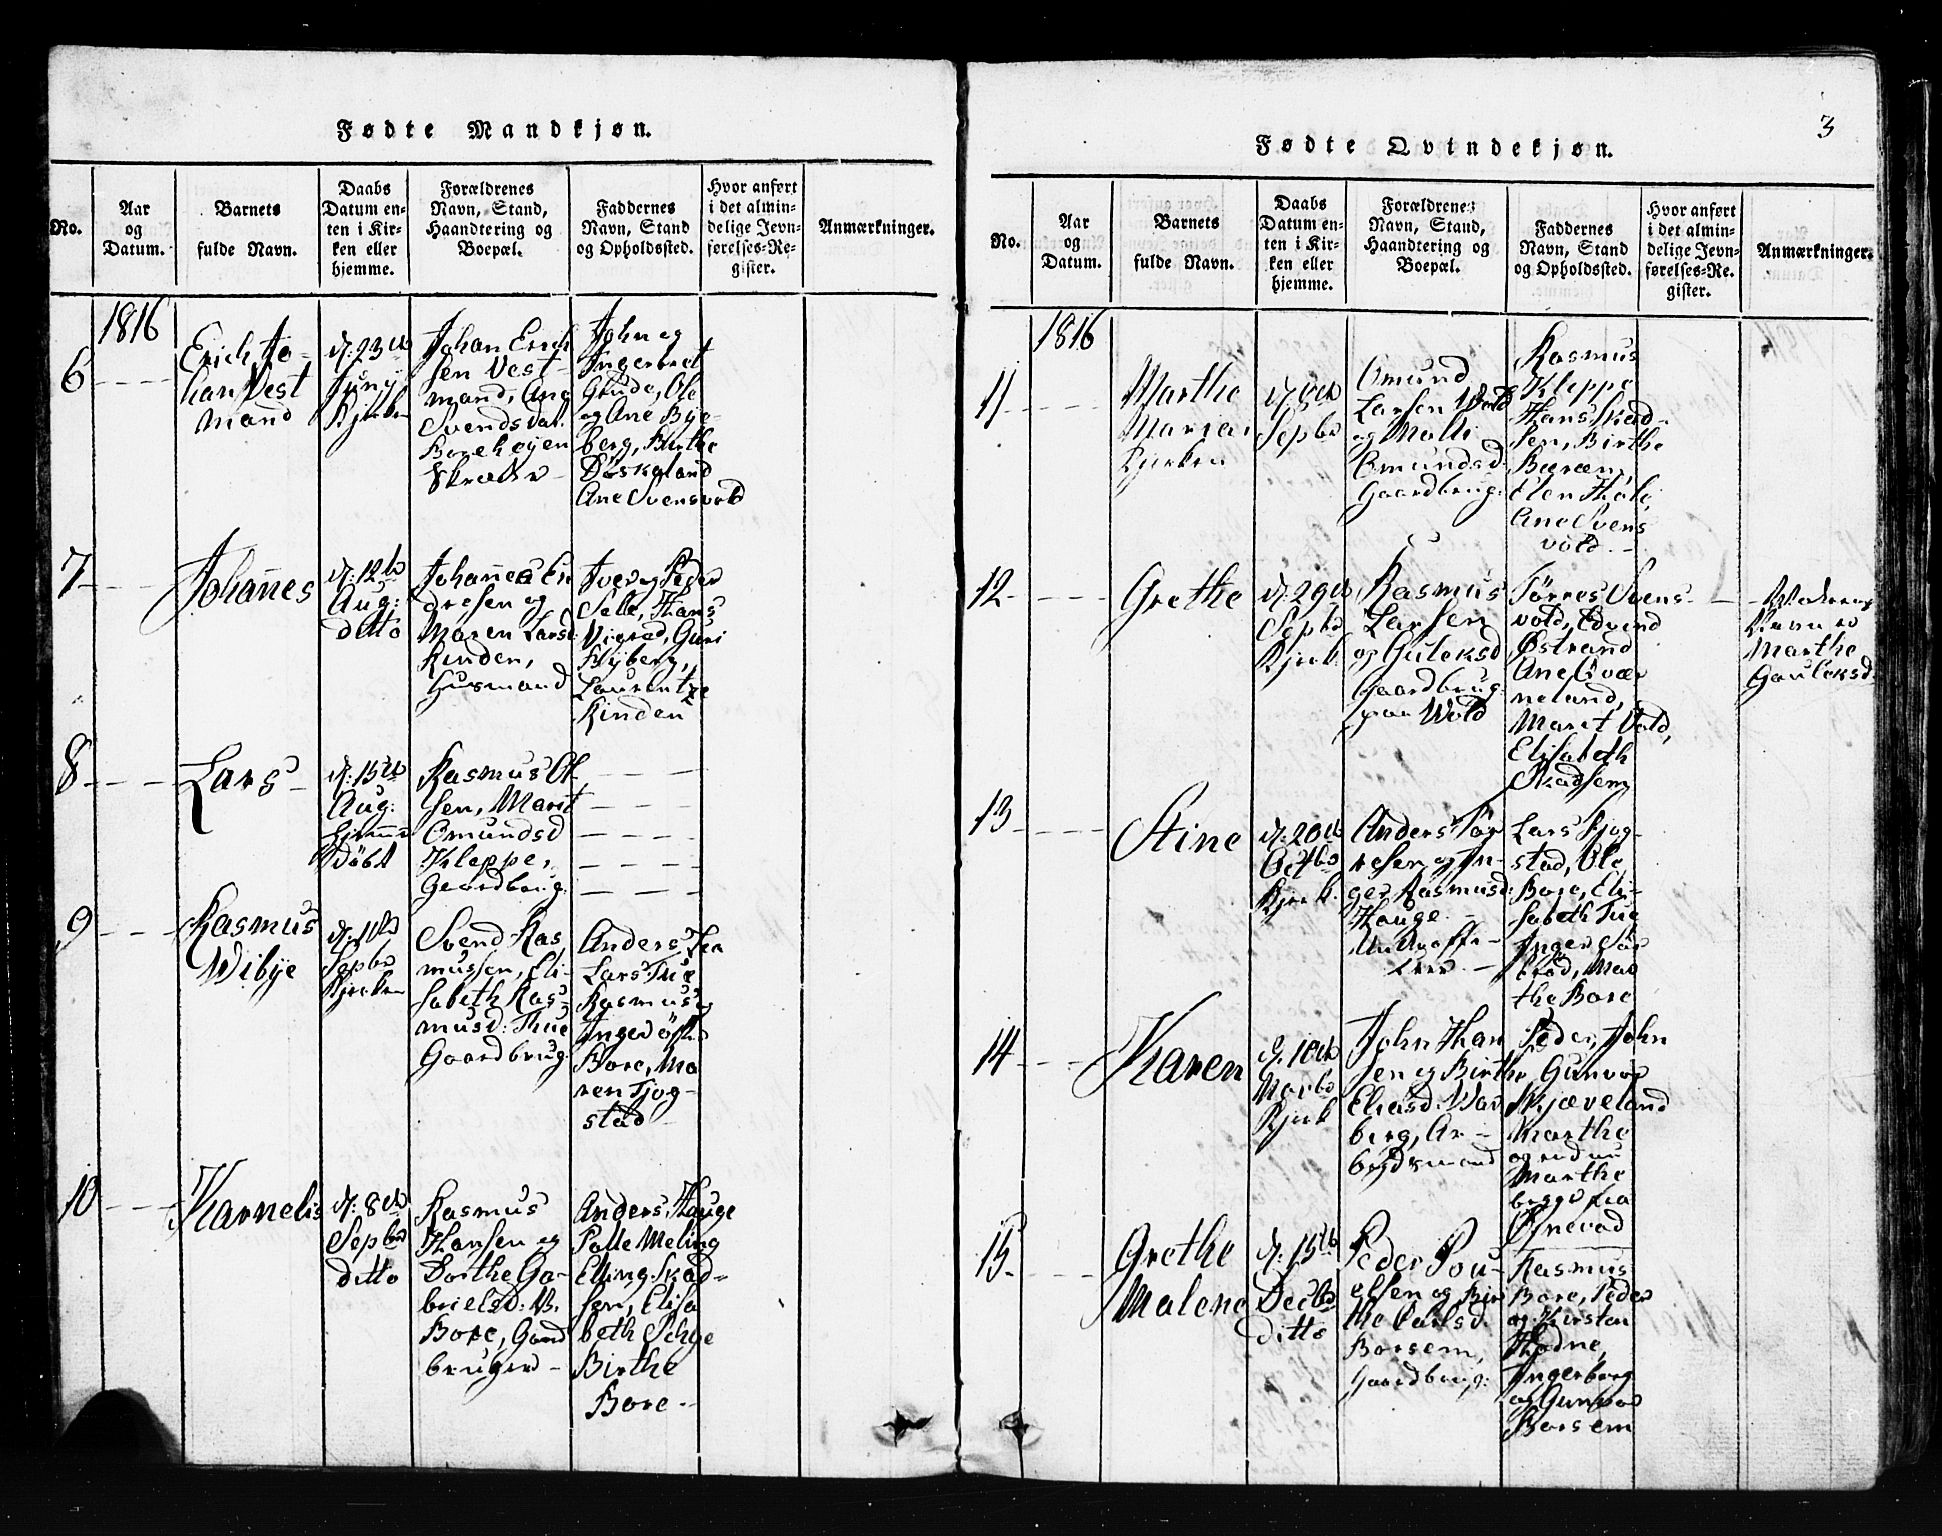 Fødte Mandkjøn.
No.
Aar
og
Datum.
Barnets
fulde Navn.
Daabs
Datum en-
ten i Kir-
ken eller
hjemme.
Forældrenes
Navn, Stand,
Haandtering og
Boepæl.
Faddernes
Navn, Stand
og Opholdssted.
Hvor anført
i det almin-
delige Jevn-
førelses-Re-
gister.
Anmærkninger.
1816
6
Erich Jo-
han Vest
mand
d: 23de
Juny
Kjrken
Johan Erich
sen Vest-
mand, Ane
Svendsdat.
Borehøyen
John og
Ingerbret
Grude, Ole
og Ane Bye-
berg, Birthe
Ane Svensvold
7
Johañes
d: 12te
Aug:
ditto
Johañes En
dresen og
Maren Larsd:
Rinden,
Husmand
Iver og Peder
Sele, Hans
Vigred, Guri
Nyberg,
Laurentze
Rinden
8
Lars
d: 15de
Aug:
døbt
Rasmus Ol-
sen, Marit
Omundsd
Kleppe,
Gaardbrug:
9
Rasmus
Wibye
d: 1ste
Sepbr
Kjrken
Svend Ras
mussen, Eli-
sabeth Ras-
musd: Thue
Gaardbrug:
Anders Fra
Lars Tue
Rasmus og
Inger
Bore, Ma
ren Tjog-
stad
10
Karnelis
d: 8de
Sepbr
ditto
Rasmus
Hansen og
Dorthe Ga-
brielsd: N.
Bore, Gaard
bruger
Anders Hauge
Palle Meling
Elling Skad-
sem, Elisa
beth Schye
Birthe
Bore
3
Fødte Qvindekjøn.
No.
Aar
og
Datum.
Barnets
fulde Navn.
Daabs
Datum en-
ten i Kir-
ken eller
hjemme.
Forældrenes
Navn, Stand,
Haandtering og
Boepæl.
Faddernes
Navn, Stand
og Opholdssted.
Hvor anført
i det almin-
delige Jevn-
førelses-Re-
gister.
Anmærkninger.
1816
11
Marthe
Maria
Kjerken
d: 8de
Sepbr
Omund
Larsen Wold
og Malli
Omundsd
Gaardbrug:
Rasmus
Kleppe
Hans Skad-
sem, Birthe
Elen Hole
Ane Svens
vold
12
Grethe
d: 29de
Sepbr
Kjrk
Rasmus
Larsen
og Guleksd
Gaardbrug:
paa Wold
Tørres Svens-
vold, Edvind
Østrand
Ane Qvær
neland,
Marit Vold,
Elisabeth
Skadsem
Navn er
Marthe
Gauleksd.
13
Stine
d: 20de
Octbr
Kjrk
Anders Tør
resen og In-
ger Rasmusd:
Hauge
Lars Tjog-
stad, Ole
Bore, Eli-
sabeth Tue
Inger Sør
Mar
the Bore
14
Karen
d: 10de
Novbr
Kjrk
John Han
sen og Birthe
Eliasd: War
berg, Ar-
beydsmand
Peder, John
Gunvor
Skjæveland
Marthe
og endnu
Marthe
begge fra
Øxnevad
15
Grethe
Malene
d: 15de
Decbr
ditto
Peder Pou-
elsen og Bir
the Carlsd.
Borsem,
Gaardbrug:
Rasmus
Bore, Peder
og Kirsten
Hodne,
Ingerborg
og Gunvor
Borsem